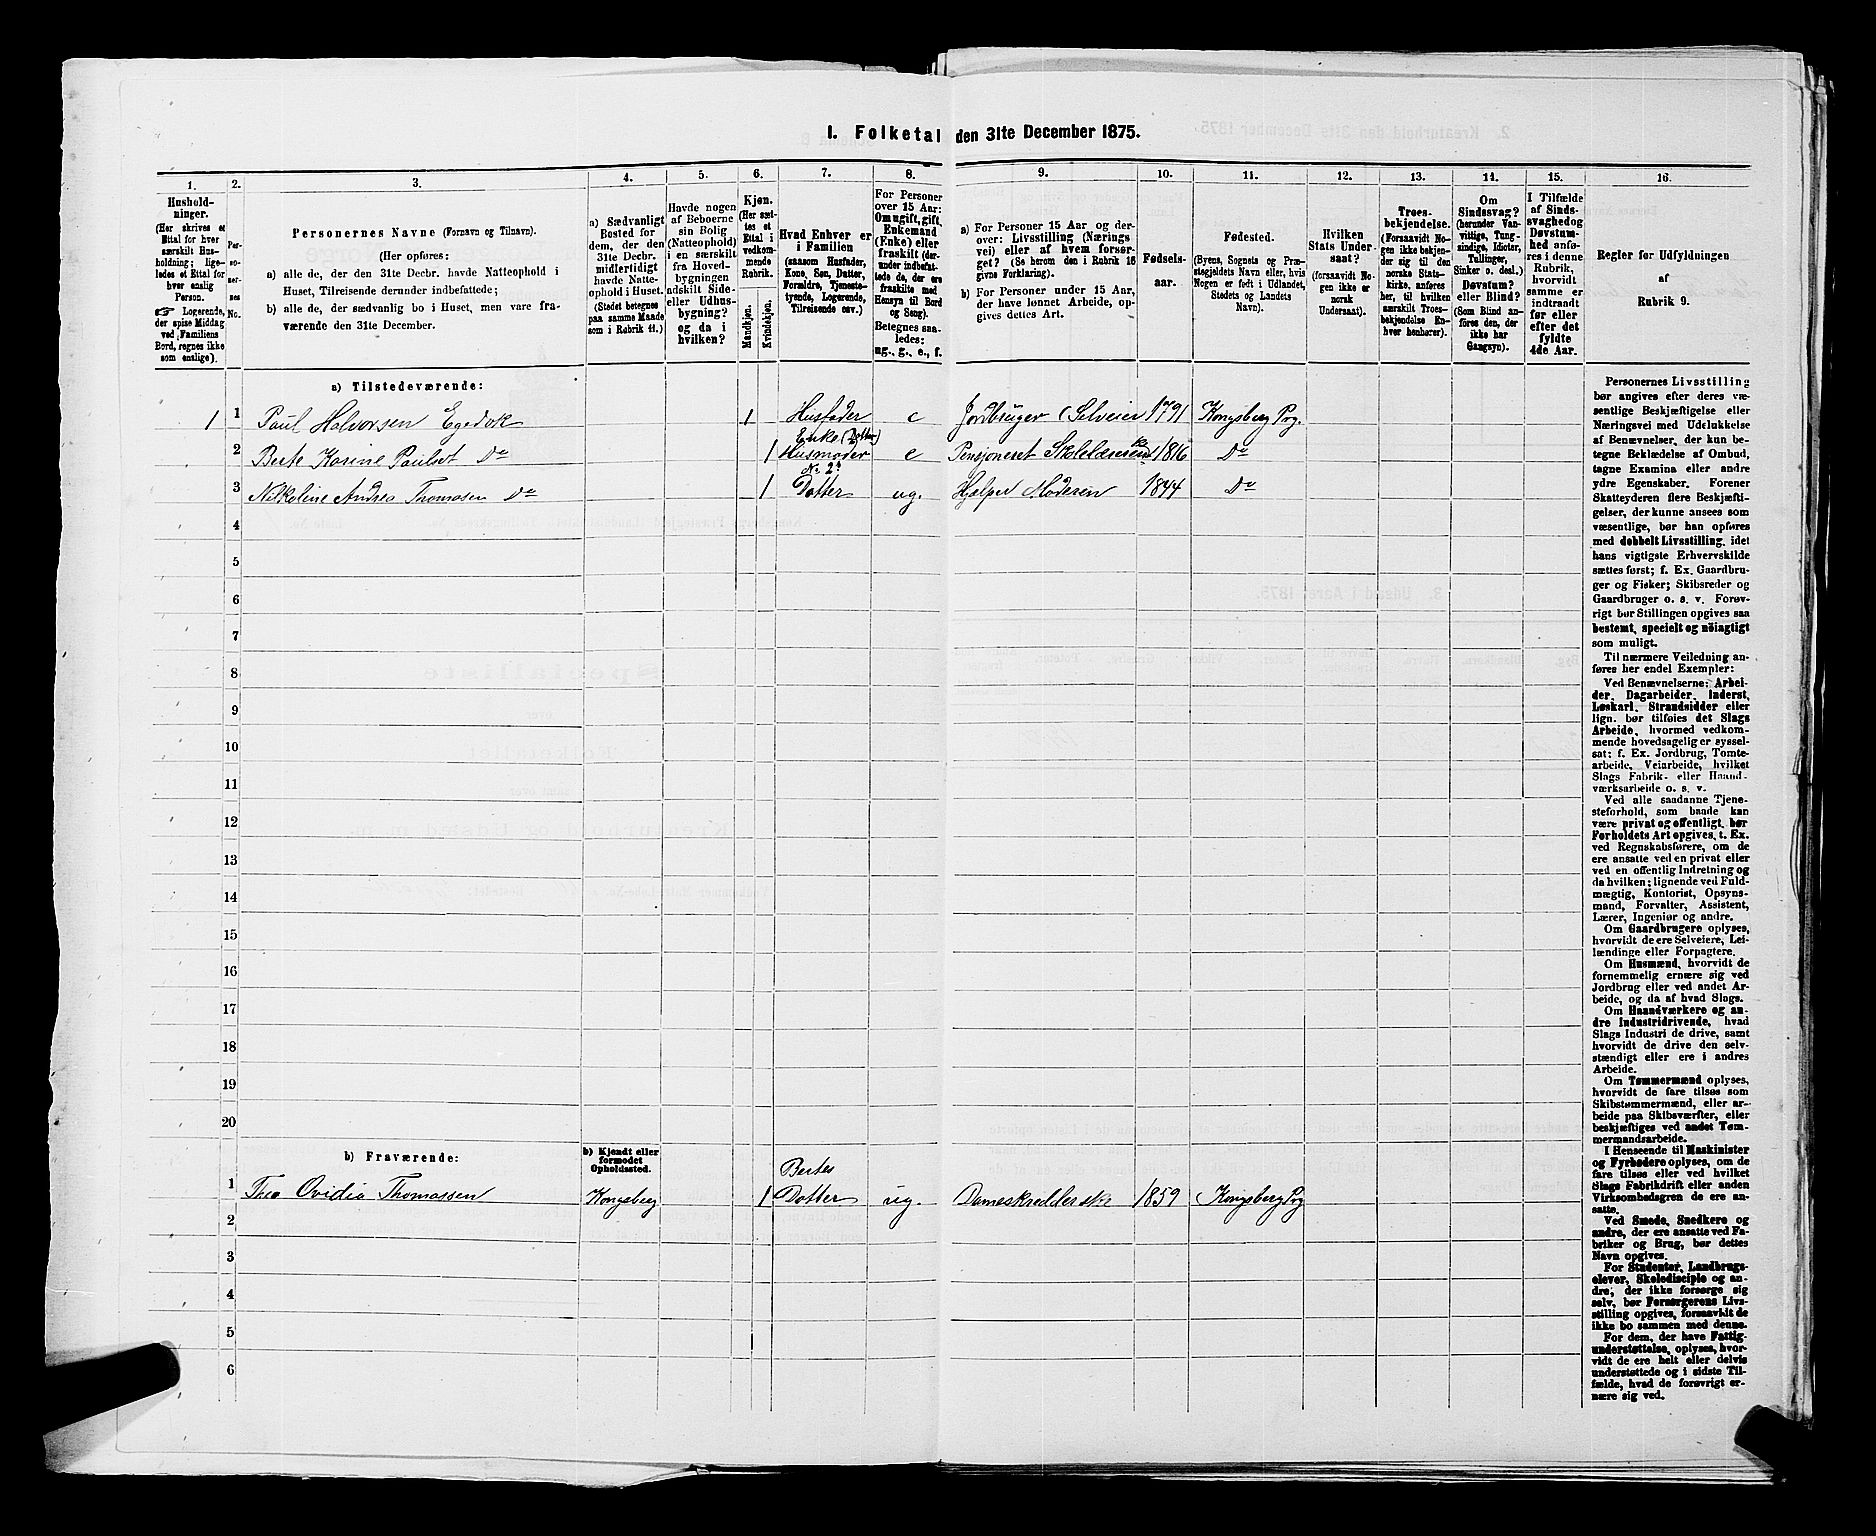 1. Folketal den 31te December 1875.
1.
2.
3.
4.
5.
6.
7.
8.
9.
10.
11.
12.
13.
14.
15.
16.
Hushold-
ninger.
(Her skrives et
Ettal for hver
særskilt Hus-
holdning; lige-
ledes et Ettal for
hver enslig
Person.
☞ Logerende,
der spise Middag
ved Familiens
Bord, regnes ikke
som enslige).
Per-
so-
ner-
nes
No.
Personernes Navne (Fornavn og Tilnavn).
(Her opføres:
a) alle de, der den 31te Decbr. havde Natteophold i
Huset, Tilreisende derunder indbefattede;
b) alle de, der sædvanlig bo i Huset, men vare fra-
værende den 31te December.
a) Sædvanligt
Bosted for
dem, der den
31te Decbr.
midlertidigt
havde Natte-
ophold i Huset.
(Stedet betegnes
paa samme Maade
som i Rubrik 11.)
Havde nogen
af Beboerne
sin Bolig
(Natteophold)
i en særskilt
fra Hoved-
bygningen
adskilt Side-
eller Udhus-
bygning?
og da i
hvilken?
Kjøn.
(Her sæt-
tes et
Ettal i
vedkom-
mende
Rubrik.
Mandkjøn.
Kvindekjøn.
Hvad Enhver er
i Familien
(saasom Husfader,
Kone, Søn, Datter,
Forældre, Tjeneste-
tyende, Logerende,
Tilreisende osv.)
For Personer
over 15 Aar:
Om ugift, gift,
Enkemand
(Enke) eller
fraskilt (der-
under indbefat-
tede de, der ere
fraskilte med
Hensyn til Bord
og Seng).
Betegnes saa-
ledes:
ug., g., e., f.
a) For Personer 15 Aar og der-
over: Livsstilling (Nærings
vei) eller af hvem forsør-
get? (Se herom den i Rubrik 16
givne Forklaring).
b) For Personer under 15 Aar,
der have lønnet Arbeide, op-
gives dettes Art.
Fødsels-
aar.
Fødested.
(Byens, Sognets og Præ-
stegjeldets Navn eller, hvis
Nogen er født i Udlandet,
Stedets og Landets
Navn).
Hvilken
Stats Under-
saat?
(forsaavidt No-
gen ikke er
norsk
Undersaat).
Troes-
bekjendelse.
(Forsaavidt No-
gen ikke bekjen-
der sig til den
norske Stats-
kirke, anføres
her, til hvilken
særskilt Troes-
bekjendelse En-
hver henhører).
Om
Sindssvag?
(herunder Van-
vittige, Tung-
sindige, Idioter,
Tullinger,
Sinker o. desl.)
Døvstum?
eller Blind?
(Som Blind an-
føres den, der
ikke har
Gangsyn).
I Tilfælde
af Sinds-
svaghed og
Døvstum-
hed anfø-
res i denne
Rubrik,
hvorvidt
samme er
indtraadt
før eller
efter det
fyldte
4de Aar.
Regler før Udfyldningen
af
Rubrik 9.
a) Tilstedeværende:
1 1 Paul Halvorsen Egedok 1 Husfader e Jordbruger Selveier 1791 Kongsberg Prg.
Enke (Datter)
2 Berte Karine Paulset Do 1 Husmoder e Pensjoneret 1816 Do
No. 2s
3 Nilkoline Andrea Thomasen Do 1 Datter ug. Hjælper Moderen 1844 Do
4
5
6
7
8
9
10
11
12
13
14
15
16
17
18
19
20
b) Fraværende:
b) Kjendt eller
formodet
Opholdssted.
Bertes
1 Thea Ovidia Thomassen Kongsberg 1 Datter ug. Dameskredderske 1859 Kongsberg Prg
2
3
4
5
6
Personernes Livsstilling
bør angives efter deres væ-
sentlige Beskjæftigelse eller
Næringsvei med Udelukkelse
af Benævnelser, der kun be-
tegne Beklædelse af Ombud,
tagne Examina eller andre
ydre Egenskaber. Forener
Skatteyderen flere Beskjæfti-
gelser, der kunne ansees som
væsentlige, bør han opføres
med dobbelt Livsstilling, idet
hans vigtigste Erhvervskilde
sættes først; f. Ex. Gaardbru-
ger og Fisker; Skibsreder og
Gaardbruger o. s. v. Forøv-
rigt bør Stillingen opgives saa
bestemt, specielt og nøiagtigt
som muligt.
Til nærmere Veiledning an-
føres her endel Exempler:
Ved Benævnelserne: Arbei-
der, Dagarbeider, Inderst,
Løskarl, Strandsidder eller
lign. bør tilføies det Slags
Arbeide, hvormed vedkom-
mende hovedsagelig er syssel-
sat; f. Ex. Jordbrug, Tomte-
arbeide, Veiarbeide, hvilket
Slags Fabrik- eller Haand-
værksarbeide o. s. v.
Ved alle saadanne Tjene-
steforhold, som baade kan
være privat og offentligt, bør
Forholdets Art opgives, t. Ex.
ved Regnskabsførere, om de
ere ansatte ved en privat eller
ved en offentlig Indretning og
da hvilken; lignende ved Fuld-
mægtig, Kontorist, Opsyns-
mand, Forvalter, Assistent,
Lærer, Ingeniør og andre.
Om Gaardbrugere oplyses,
hvorvidt de ere Selveiere, Lei-
lændinge eller Forpagtere.
Om Husmænd, hvorvidt de
fornemmelig ernære sig ved
Jordbrug eller ved andet Ar-
beide, og da af hvad Slags.
Om Haandværkere og an-
dre Industridrivende, hvad
Slags Industri de drive, samt
hvorvidt de drive den selv-
stændigt eller ere i andres
Arbeide.
Om Tømmermænd oplyses,
hvorvidt de fare tilsøs som
Skibstømmermænd, eller ar-
beide paa Skibsværfter, eller
beskjæftiges ved andet Tøm-
mermandsarbeide.
I Henseende til Maskinister
og Fyrbødere oplyses, om de
fare tilsøs eller ved hvilket
Slags Fabrikdrift eller anden
Virksomhedsgren de ere an-
satte.
Ved Smede, Snedkere og
andre, der ere ansatte ved Fa-
briker og Brug, bør dettes
Navn opgives.
For Studenter, Landbrugs-
elever, Skoledisciple og an-
dre, der ikke forsørge sig
selv, bør Forsørgerens Livs-
stilling opgives, forsaavidt de
ikke bo sammen med denne.
For dem, der have Fattig-
understøttelse, oplyses, hvor-
vidt de ere helt eller delvis
understøttede og i sidste Til-
fælde, hvad de forøvrigt er-
nære sig ved.